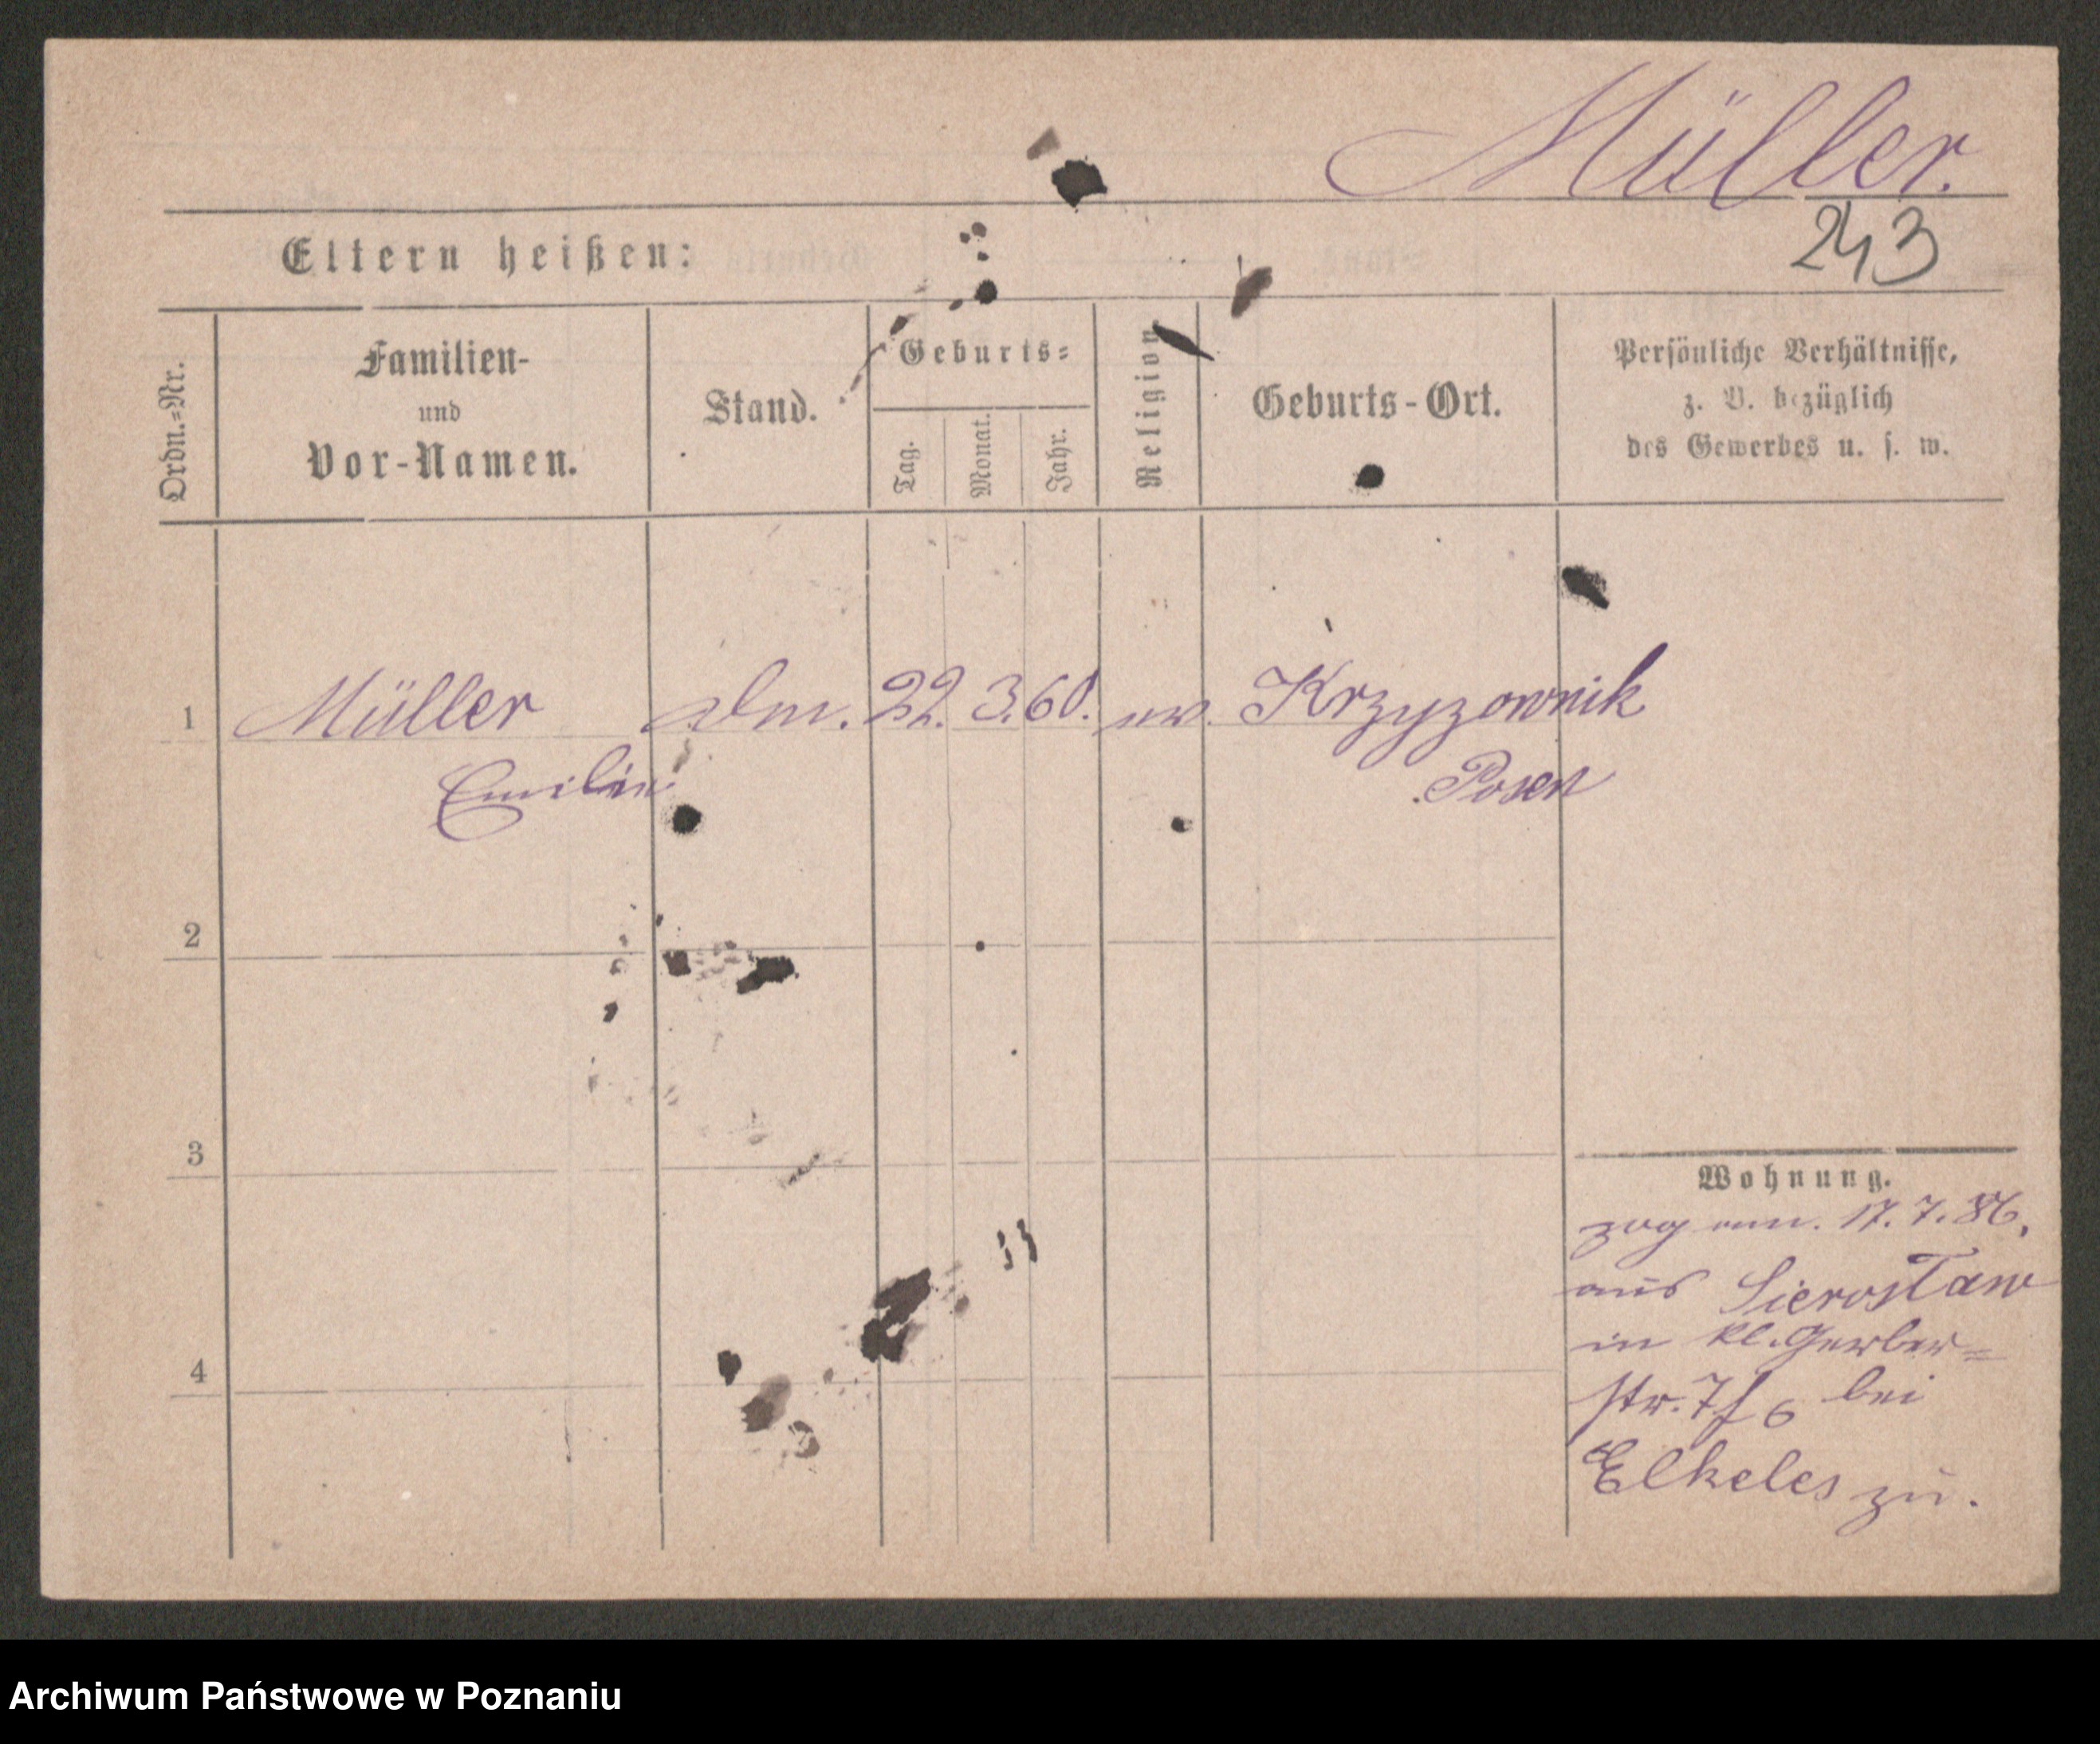 Müller.
243
Eltern heißen:
Ordn.=Nr.
Familien-
und
Vor-Namen.
Stand.
Geburts=
Tag.
Monat.
Jahr.
Religion.
Geburts-Ort.
Persönliche Verhältnisse,
z. B. bezüglich
des Gewerbes u. s. w.
1 Müller 22. 3. 60. ev. Krzyzownik
Emilie Posen
2
3
4
Wohnung.
zog am. 17. 7. 86.
aus Sieroslaw
in kl. Gerber=
str. 7/6 bei
Elkeles zu.
Archiwum Państwowe w Poznaniu